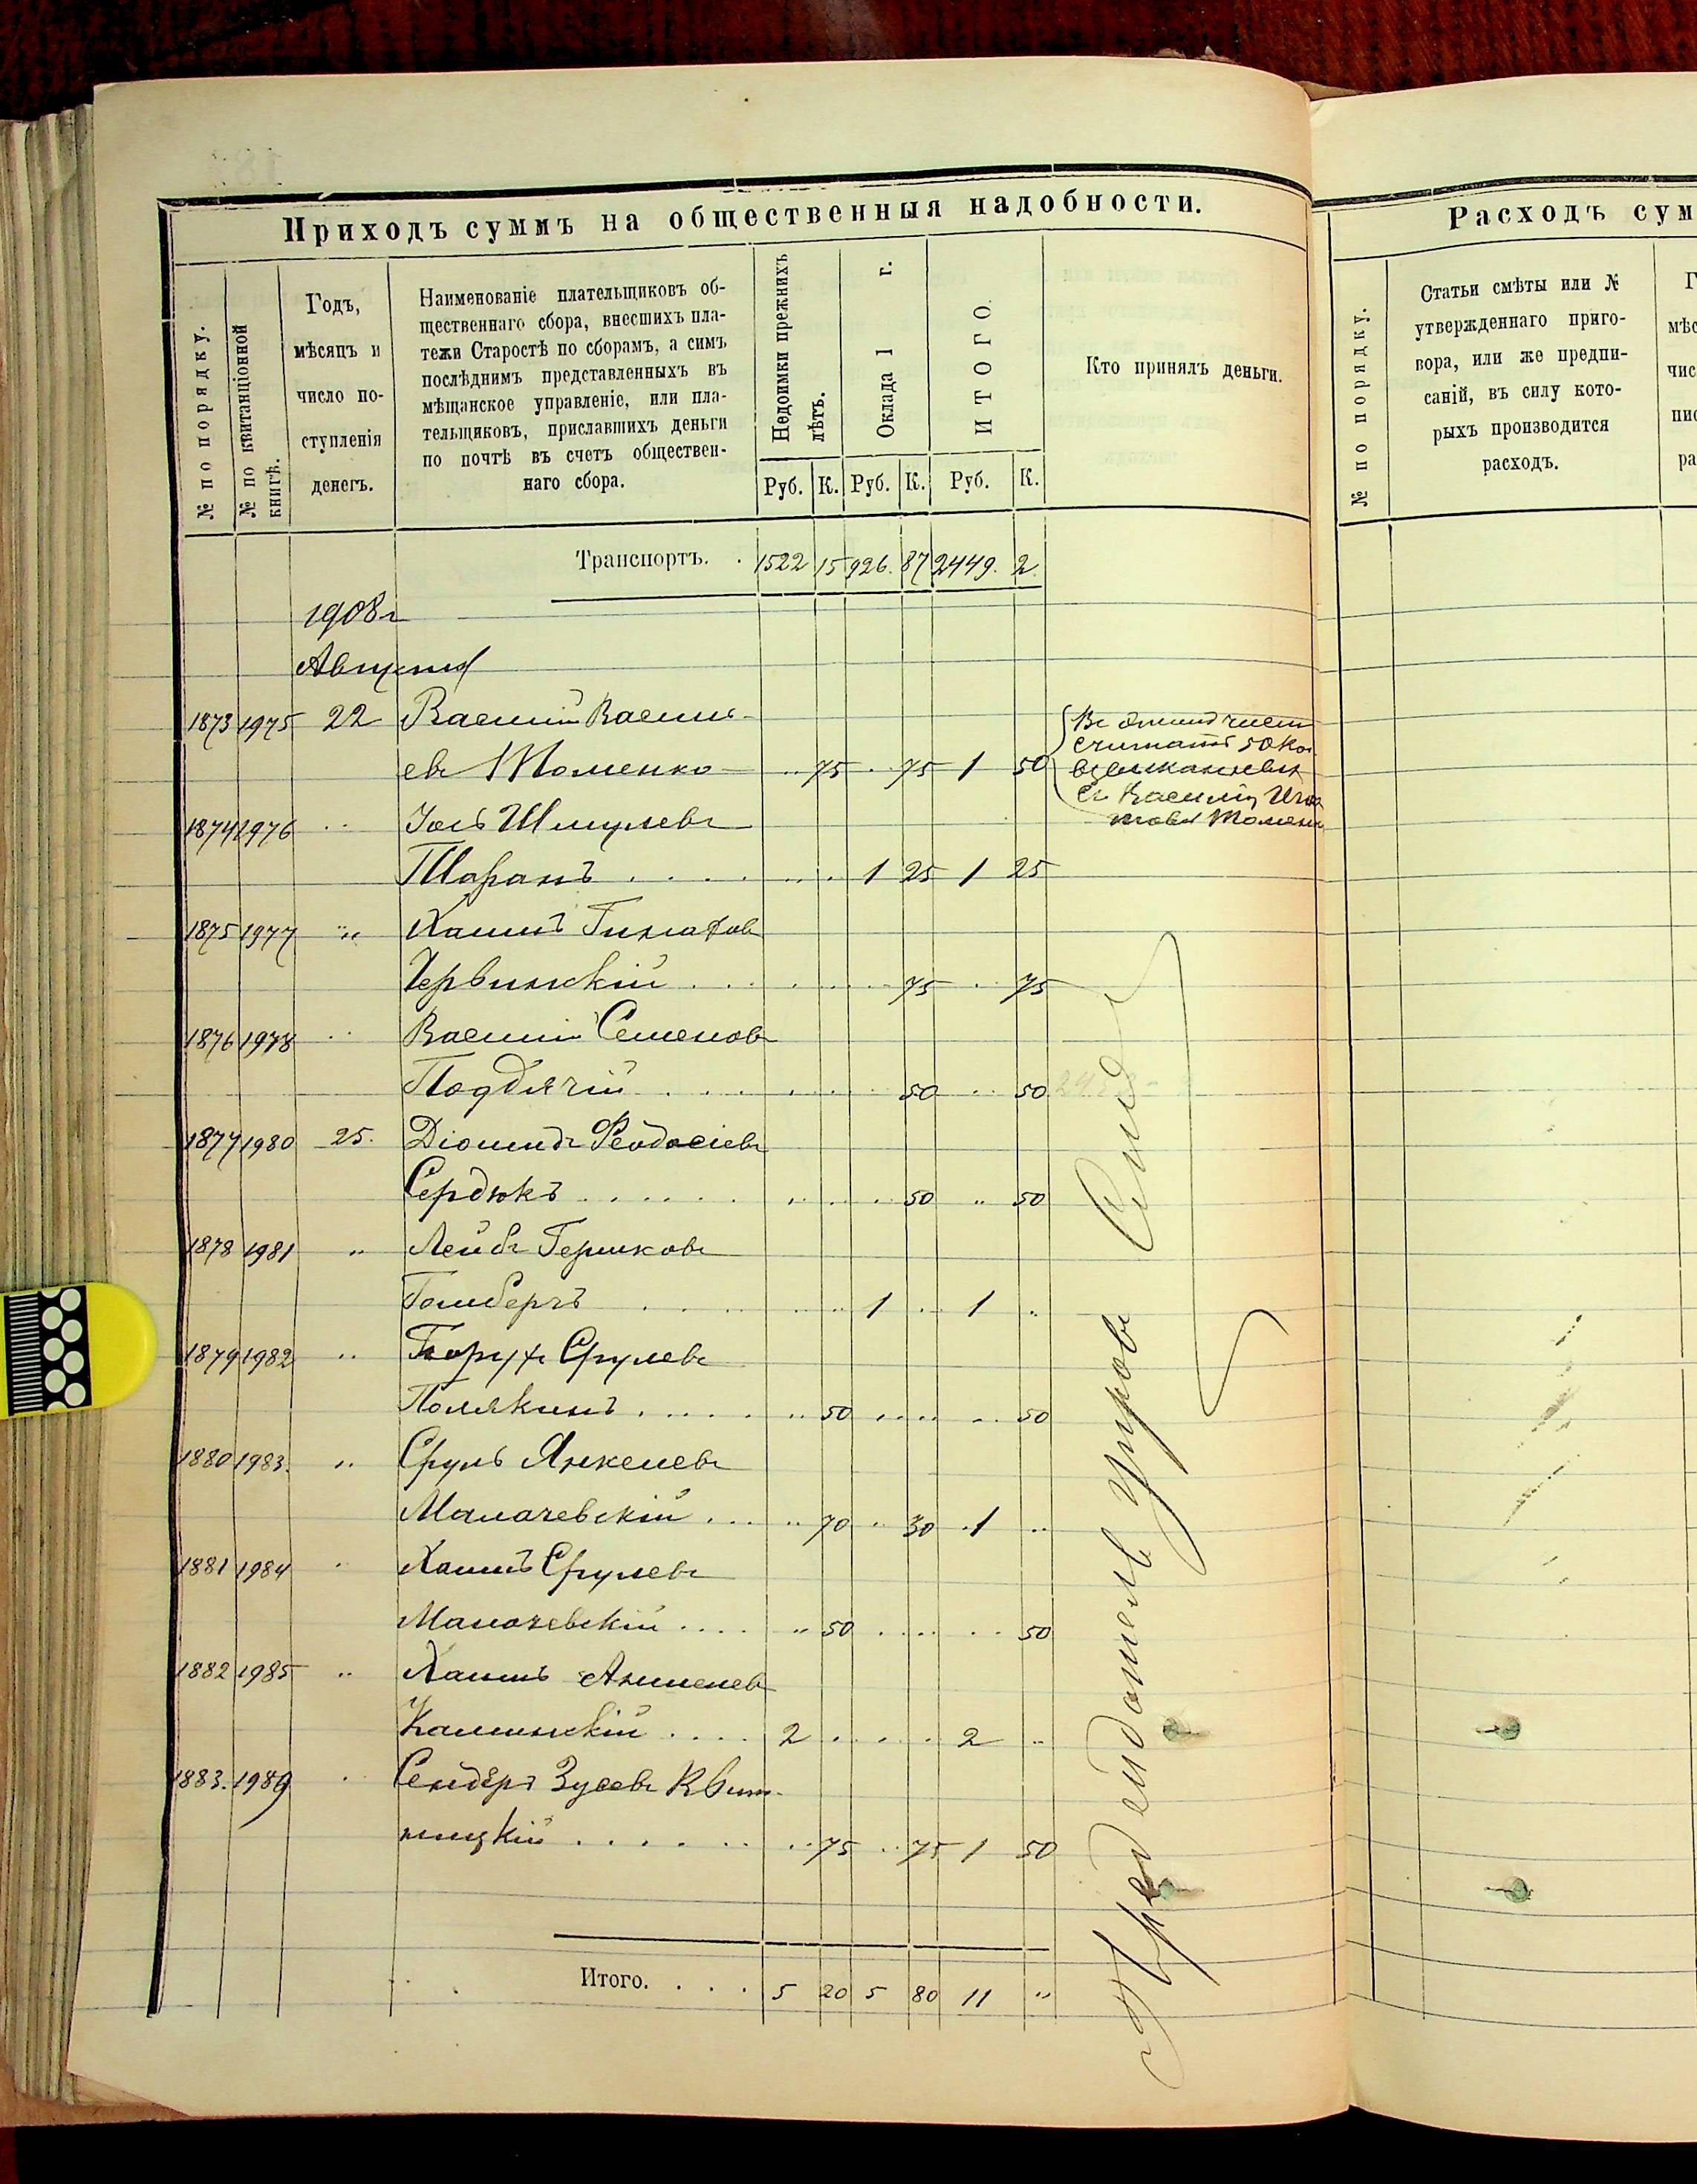 Приходъ суммъ на общественныя надобности.
№ по порядку.
№ по квитанціонной книгѣ.
Годъ,
мѣсяцъ и
число по-
ступленія
денегъ.
Наименованіе плательщиковъ об-
щественнаго сбора, внесшихъ пла-
тежи Старостѣ по сборамъ, а симъ
послѣднимъ представленныхъ въ
мѣщанское управленіе, или пла-
тельщиковъ, приславшихъ деньги
по почтѣ въ счетъ обществен-
наго сбора.
Недоимки прежнихъ лѣтъ.
Оклада 1 г.
ИТОГО.
Кто принялъ деньги.
Руб. К. Руб. К. Руб. К.
Транспортъ. . 1522 15 926. 87 2449. 2
1908 г
Августа
1873 1975 22 Василій Василь-
евъ Томенко .. 75 . 75 1 50
Въ
считать 50 ко
взысканныхъ
съ Василія
Томенк
1874 1976 .. Іось Шмулевъ
Шаранъ . . . . 1 25 1 25
1875 1977 .. Хаимъ
Червинскій . . . 75 . 75
1876 1978 . Василій Семеновъ
Подбячій . . . 50 .. 50
1877 1980 25. Діомидъ Феодосіевъ
Сердюкъ . . . . . . 50 .. 50
1878 1981 .. Лейбъ Гершковъ
Гомбергъ . . . 1 .. 1 ..
1879 1982 .. Борухъ Срулевъ
Полякинъ . . . . .. 50 .... .. 50
1880 1983. .. Срулъ Янкелевъ
Малачевскій . . . .. 70 .. 30 . 1 ..
1881 1984 . Хаимъ Срулевъ
Малачевскій . . . . .. 50 .... .. 50
1882 1985 .. Хаимъ Аншелевъ
Калинскій . . . . 2 . . . . 2 ..
1883. 1989 . Сендеръ Зусевъ Квит-
ницкій . . . . . . .. 75 .. 75 1 50
Итого. . . . 5 20 5 80 11 ..
Расходъ сум
№ по порядку.
Статьи смѣты или №
утвержденнаго приго-
вора, или же предпи-
саній, въ силу кото-
рыхъ производится
расходъ.
Г
мѣс
чис
пис
ра